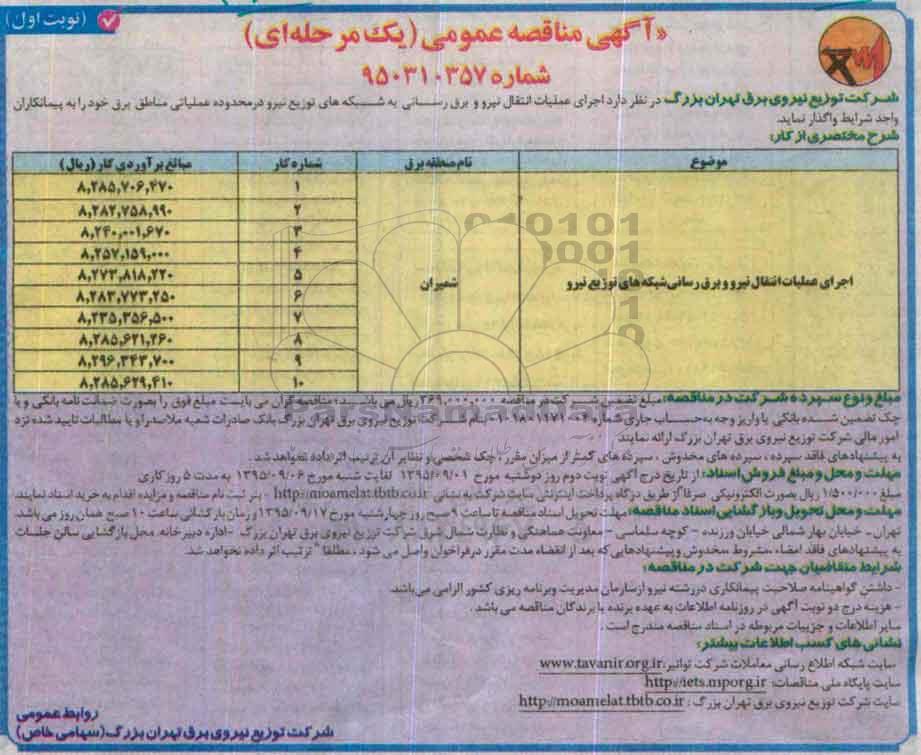 (نوبت اول)
«آگهی مناقصه عمومی (یک مرحله‌ای)
شماره ۹۵۰۳۱۰۳۵۷
شرکت توزیع نیروی برق تهران بزرگ در نظر دارد اجرای عملیات انتقال نیرو و برق رسانی به شبکه های توزیع نیرو درمحدوده عملیاتی مناطق برق خود را به پیمانکاران
واجد شرایط واگذار نماید.
شرح مختصری از کار:
موضوع نام منطقه برق شماره کار مبالغ برآوردی کار (ریال)
۱ ۸,۲۸۵,۷۰۶,۴۷۰
۲ ۸,۲۸۲,۷۵۸,۹۹۰
۳ ۸,۲۴۰,۰۰۱,۶۷۰
۴ ۸,۲۵۷,۱۵۹,۰۰۰
اجرای عملیات انتقال نیرو و برق رسانی شبکه های توزیع نیرو شمیران ۵ ۸,۲۷۳,۸۱۸,۲۲۰
۶ ۸,۲۸۳,۷۷۳,۲۵۰
۷ ۸,۲۳۵,۳۵۶,۵۰۰
۸ ۸,۲۸۵,۶۲۱,۲۶۰
۹ ۸,۲۹۶,۳۴۳,۷۰۰
۱۰ ۸,۲۸۵,۶۲۹,۴۱۰
ParsNamadData
مبلغ و نوع سپرده شرکت در مناقصه: مبلغ تضمین شرکت در مناقصه ۲۶۹,۰۰۰,۰۰۰ ریال می باشد، مناقصه گران می بایست مبلغ فوق را بصورت ضمانت نامه بانکی و یا
چک تضمین شده بانکی یا واریز وجه به حساب جاری شماره بنام شرکت توزیع نیروی برق تهران بزرگ بانک صادرات شعبه ملاصدرا و یا مطالبات تایید شده نزد
امور مالی شرکت توزیع نیروی برق تهران بزرگ ارائه نمایند.
به پیشنهادهای فاقد سپرده ، سپرده های مخدوش ، سپرده های کمتر از میزان مقرر، چک شخصی و نظایر آن ترتیب اثر داده نخواهد شد.
مهلت و محل و مبلغ فروش اسناد: از تاریخ درج آگهی نوبت دوم روز دوشنبه مورخ ۱۳۹۵/۰۹/۰۱ لغایت شنبه مورخ ۱۳۹۵/۰۹/۰۶ به مدت ۵ روز کاری
مبلغ ۱/۵۰۰/۰۰۰ ریال بصورت الکترونیکی صرفا از طریق درگاه پرداخت اینترنتی سایت شرکت به نشانی http://moamelat.tbtb.co.ir - بنر ثبت نام مناقصه و مزایده اقدام به خرید اسناد نمایند.
مهلت و محل تحویل وبازگشایی اسناد مناقصه: مهلت تحویل اسناد مناقصه تا ساعت ۹ صبح روز چهارشنبه مورخ ۱۳۹۵/۰۹/۱۷ و زمان بازگشائی ساعت ۱۰ صبح همان روز می باشد.
تهران - خیابان بهار شمالی خیابان ورزنده - کوچه سلماسی - معاونت هماهنگی و نظارت شمال شرق شرکت توزیع نیروی برق تهران بزرگ - اداره دبیرخانه، محل بازگشایی سالن جلسات
به پیشنهادهای فاقد امضاء ،مشروط ،مخدوش وپیشنهادهایی که بعد از انقضاء مدت مقرر درفراخوان واصل می شود ، مطلقا" ترتیب اثر داده نخواهد شد.
شرایط متقاضیان جهت شرکت در مناقصه:
- داشتن گواهینامه صلاحیت پیمانکاری دررشته نیرو ازسازمان مدیریت وبرنامه ریزی کشور الزامی می‌باشد.
- هزینه درج دو نوبت آگهی در روزنامه اطلاعات به عهده برنده یا برندگان مناقصه می باشد .
سایر اطلاعات و جزییات مربوطه در اسناد مناقصه مندرج است .
نشانی های کسب اطلاعات بیشتر:
سایت شبکه اطلاع رسانی معاملات شرکت توانیر: www.tavanir.org.ir
سایت پایگاه ملی مناقصات: http://iets.mporg.ir
سایت شرکت توزیع نیروی برق تهران بزرگ : http://moamelat.tbtb.co.ir
روابط عمومی
شرکت توزیع نیروی برق تهران بزرگ (سهامی خاص)